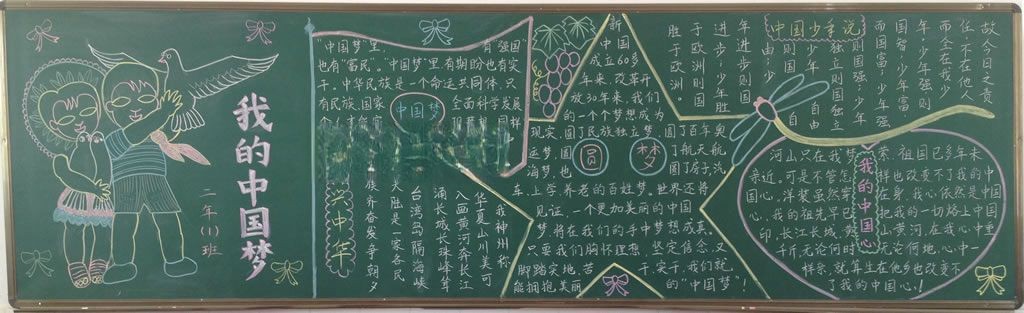 我的中国梦
二年(1)班
"中国梦"里,有强国
也有"富民"。"中国梦"里,有期盼也有实
干。中华民族是一个命运共同体,只
有民族、国家
全面科学发展
中国梦
兴中华
我神州称
华夏山川美可
入画黄河奔长江
涌长城长珠峰耸
台湾岛隔海峡
大胜是一家各民
族齐奋发争朝夕
新
中国
成立60多
年来,改革开
放30年来,我们
的一个个梦想成为
现实,圆了民族独立梦,圆了百年奥
运梦,圆了航天航
海梦,也圆了房子,汽
车,上学养老的百姓梦。世界还将
见证,一个更加美丽的中国
梦,将在我们的手中梦想成真。
只要我们胸怀理想、坚定信念、又
脚踏实地、苦干、实干,我们就
能拥抱美丽的"中国梦"!
圆梦
中国少年说
故今日之责
任,不在他人
而全在我少
年,少年强则
国智,少年富
而国富,少年强
则国强,少年
独立则国独立
少年自由
则国自
由,少
年进步则国
进步,少年胜
于欧洲则国
胜于欧洲。
我的中国心
河山只在我梦萦,祖国已多年未
亲近。可是不管怎样也改变不了我的中
国心。洋装虽然穿在身,我心依然是中
国心,我的祖先早已把我的一切烙上中
印长江长城,黄山黄河,在我心中重
千斤,无论何时,无论何地,心中一
样亲,就算生在他乡也改变不
了我的中国心!